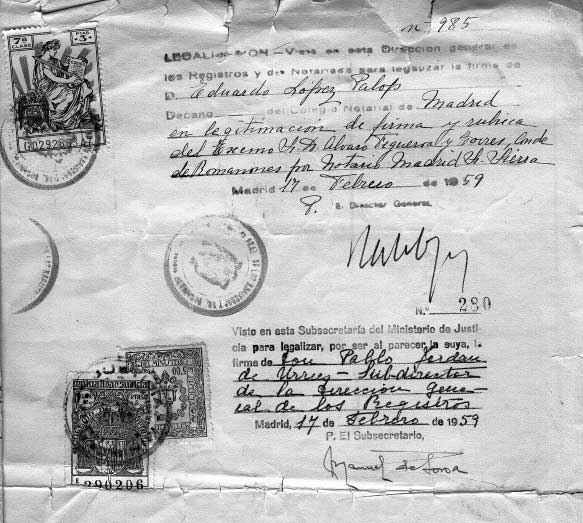 nº 985
7ª CLASE PTAS 3
LEGALIZACION.-Visto en esta Dirección general de
los Registros y del Notariado para legalizar la firma de
D. Eduardo López Palop
Decano del Colegio Notarial de Madrid
en legitimación de firma y rúbrica
del Excmo Sr. D. Alvaro Figueroa y Torres, Conde
de Romanones por Notario Madrid Sr. Sierra
Madrid 17 de Febrero de 1959
P. El Director General,
Nº 280
Visto en esta Subsecretaría del Ministerio de Justi-
cia para legalizar, por ser al parecer, la suya, la
firma de Don Pablo Jordan
de Urries - Subdirector
de la Direccion Gene-
ral de los Registros
Madrid, 17 de Febrero de 1959
P. El Subsecretario,
Manuel de
E 290206